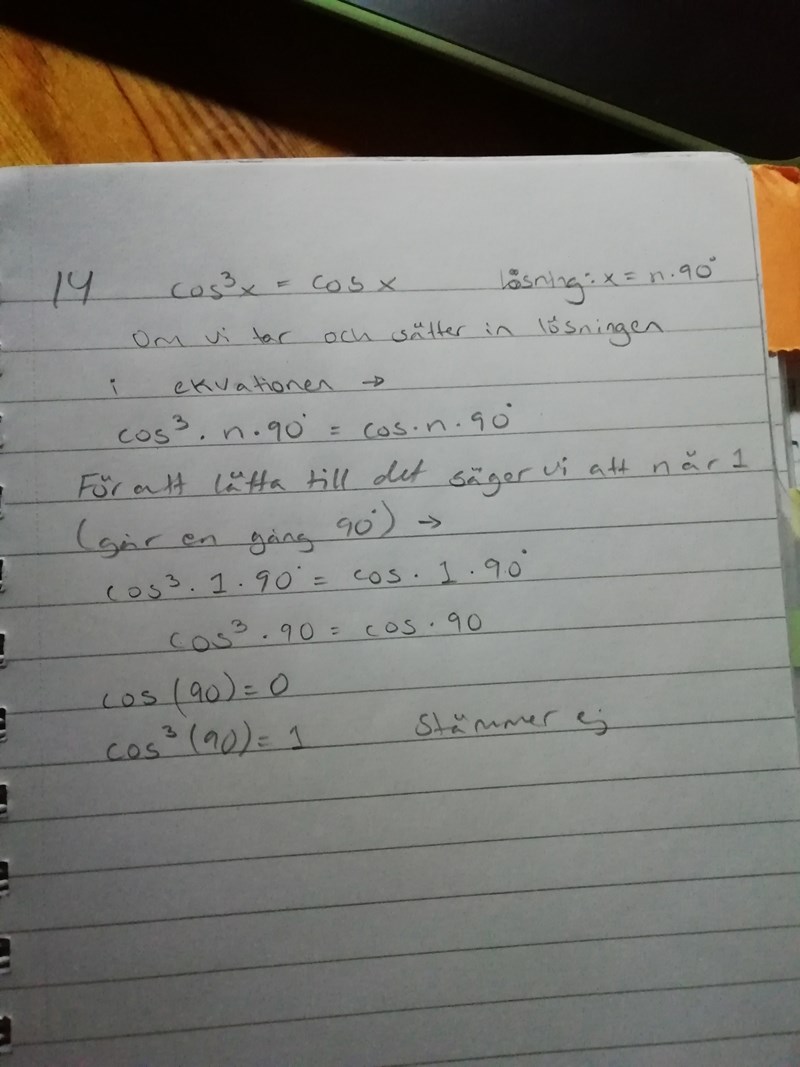 14 cos³x = cos x lösning: x = n·90°
Om vi tar och sätter in lösningen
i ekvationen →
cos³·n·90° = cos·n·90°
För att lätta till det säger vi att n är 1
(går en gång 90°) →
cos³·1·90° = cos·1·90°
cos³·90 = cos·90
cos(90)=0
cos³(90)=1 Stämmer ej